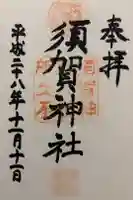 奉拝
須賀神社
平成二十八年十一月十二日